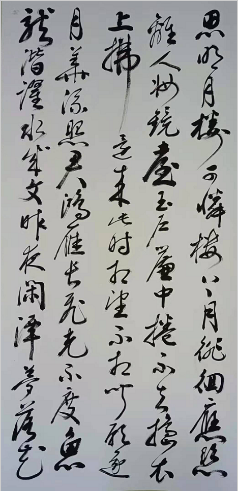 思明月樓可憐樓上月徘徊應照
離人妝鏡臺玉户簾中捲不去搗衣
上拂還來此時相望不相聞願逐
月華流照君鴻雁長飛光不度魚
龍潛躍水成文昨夜閑潭夢落花